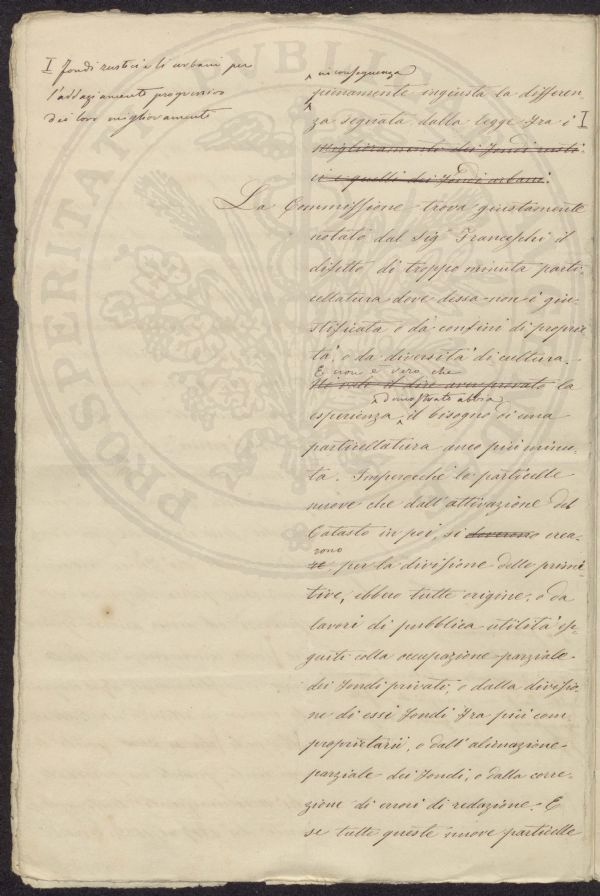 I fondi rustici e li urbani per
l'addaziamento progressivo
dei loro miglioramenti
in conseguenza
pienamente ingiusta la differen-
za segnata dalla legge fra i I
miglioramenti dei fondi rusti-
ci e quelli dei fondi urbani.
La Commissione trova giustamente
notato dal Sig Franceschi il
difetto di troppo minuta parti-
cellatura dove dessa non è giu-
stificata o da confini di proprie
tà, o da diversità di cultura.
E non è vero che
il dire aver provato la
dimostrato abbia
esperienza il bisogno di una
particellatura anco più minu-
ta. Imperocchè le particelle
nuove che dall'attivazione del
Catasto in poi, si doverono crea-
rono
re, per la divisione delle primi-
tive, ebbero tutte origine, o da
lavori di pubblica utilità ese-
guiti colla occupazione parziale
dei fondi privati, o dalla divisio-
ne di essi fondi fra più com-
proprietarii, o dall'alienazione
parziale dei fondi, o dalla corre-
zione di errori di redazione. E
se tutte queste nuove particelle
PROSPERITAT
PVBLICAE